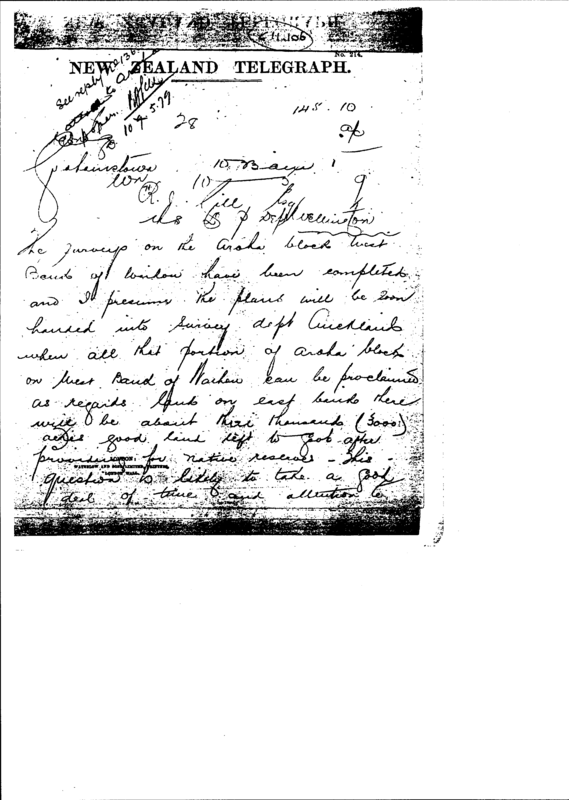 No. 214.
NEW ZEALAND TELEGRAPH.
see reply
10 5.79
28
145. 10
Grahamstown
10
R. J. Gill Esq
U. S. Dept Wellington
The surveys on the Aroha block West
Bank of Waihou have been completed
and I presume the plans will be soon
handed into Survey dept Auckland
when all that portion of Aroha block
on West Bank of Waihou can be proclaimed
as regards land on east bank there
will be about three thousand (3000)
acres good land left to Govt after
providing for native reserves - This -
question is likely to take a good
deal of time and attention to